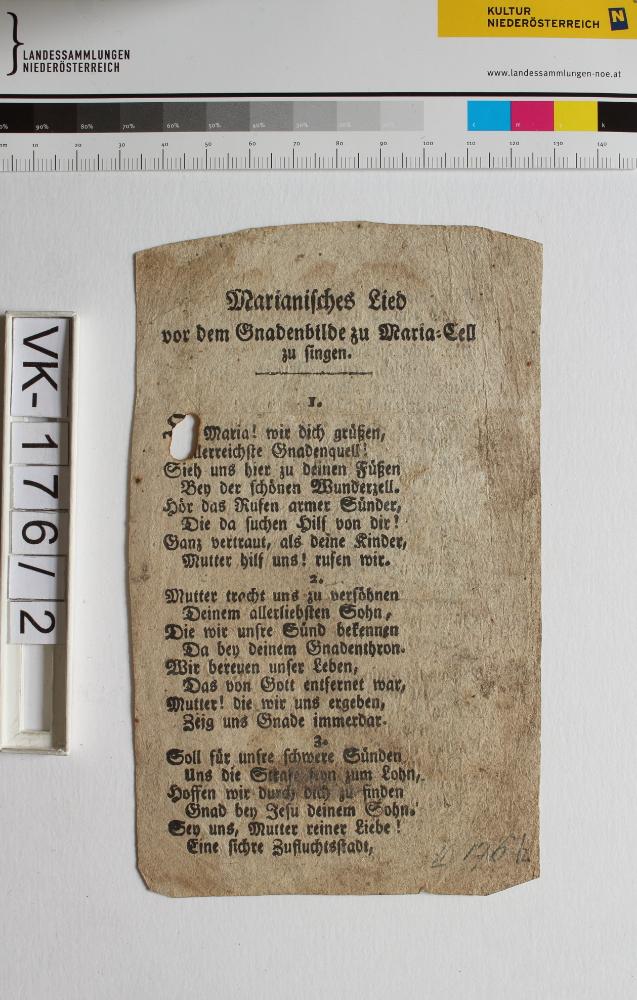 KULTUR
NIEDERÖSTERREICH N
LANDESSAMMLUNGEN
NIEDERÖSTERREICH
www.landessammlungen-noe.at
90% 80% 70% 60% 50% 40% 30% c m y k
mm 10 20 30 40 50 60 70 80 90 100 110 120 130 140
VK-176/2
Marianisches Lied
vor dem Gnadenbilde zu Maria-Cell
zu singen.
1.
Maria! wir dich grüßen,
llerreichste Gnadenquell!
Sieh uns hier zu deinen Füßen
Bey der schönen Wunderzell.
Hör das Rufen armer Sünder,
Die da suchen Hilf von dir!
Ganz vertraut, als deine Kinder,
Mutter hilf uns! rufen wir.
2.
Mutter tracht uns zu versöhnen
Deinem allerliebsten Sohn,
Die wir unsre Sünd bekennen
Da bey deinem Gnadenthron.
Wir bereuen unser Leben,
Das von Gott entfernet war,
Mutter! die wir uns ergeben,
Zeig uns Gnade immerdar.
3.
Soll für unsre schwere Sünden
Uns die Strafe seyn zum Lohn,
Hoffen wir durch dich zu finden
Gnad bey Jesu deinem Sohn.
Sey uns, Mutter reiner Liebe!
Eine sichre Zufluchtsstadt,